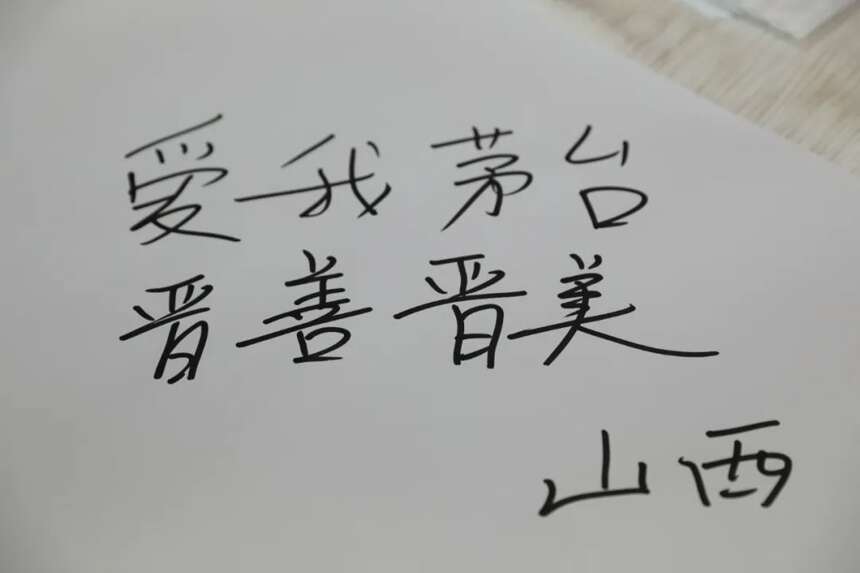 爱我茅台
晋善晋美
山西